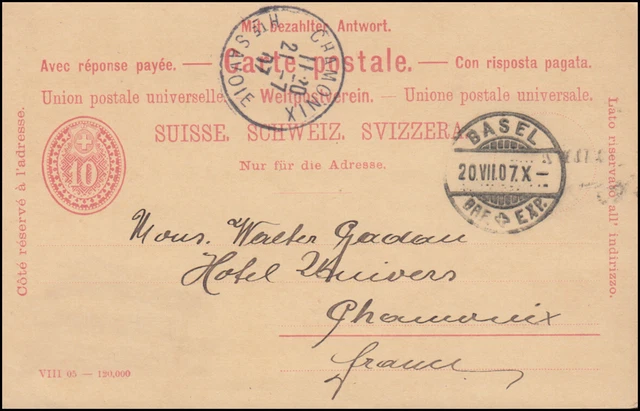 Mit bezahlter Antwort.
Avec réponse payée. — Carte postale. — Con risposta pagata.
Union postale universelle. — Weltpostverein. — Unione postale universale.
SUISSE. SCHWEIZ. SVIZZERA.
Nur für die Adresse.
Côté réservé à l'adresse.
Lato riservato all' indirizzo.
10
CHAMONIX
11-20
21-7
07
HTE SAVOIE
BASEL
20.VII.07.X-
BRF. EXP.
Mons. Walter
Hotel Univers
Chamonix
france
VIII 05 — 120,000